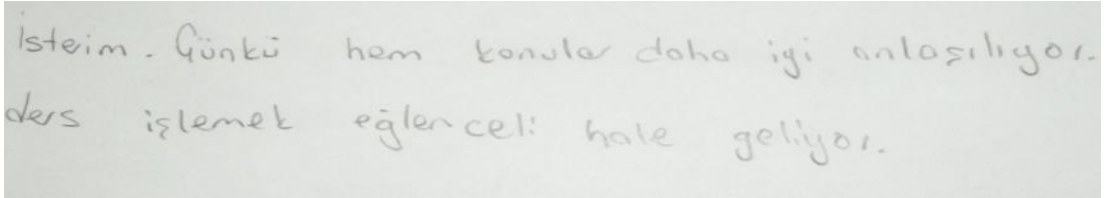 İsteim. Günkü hem konular daha iyi anlaşılıyor.
ders işlemek eğlenceli hale geliyor.